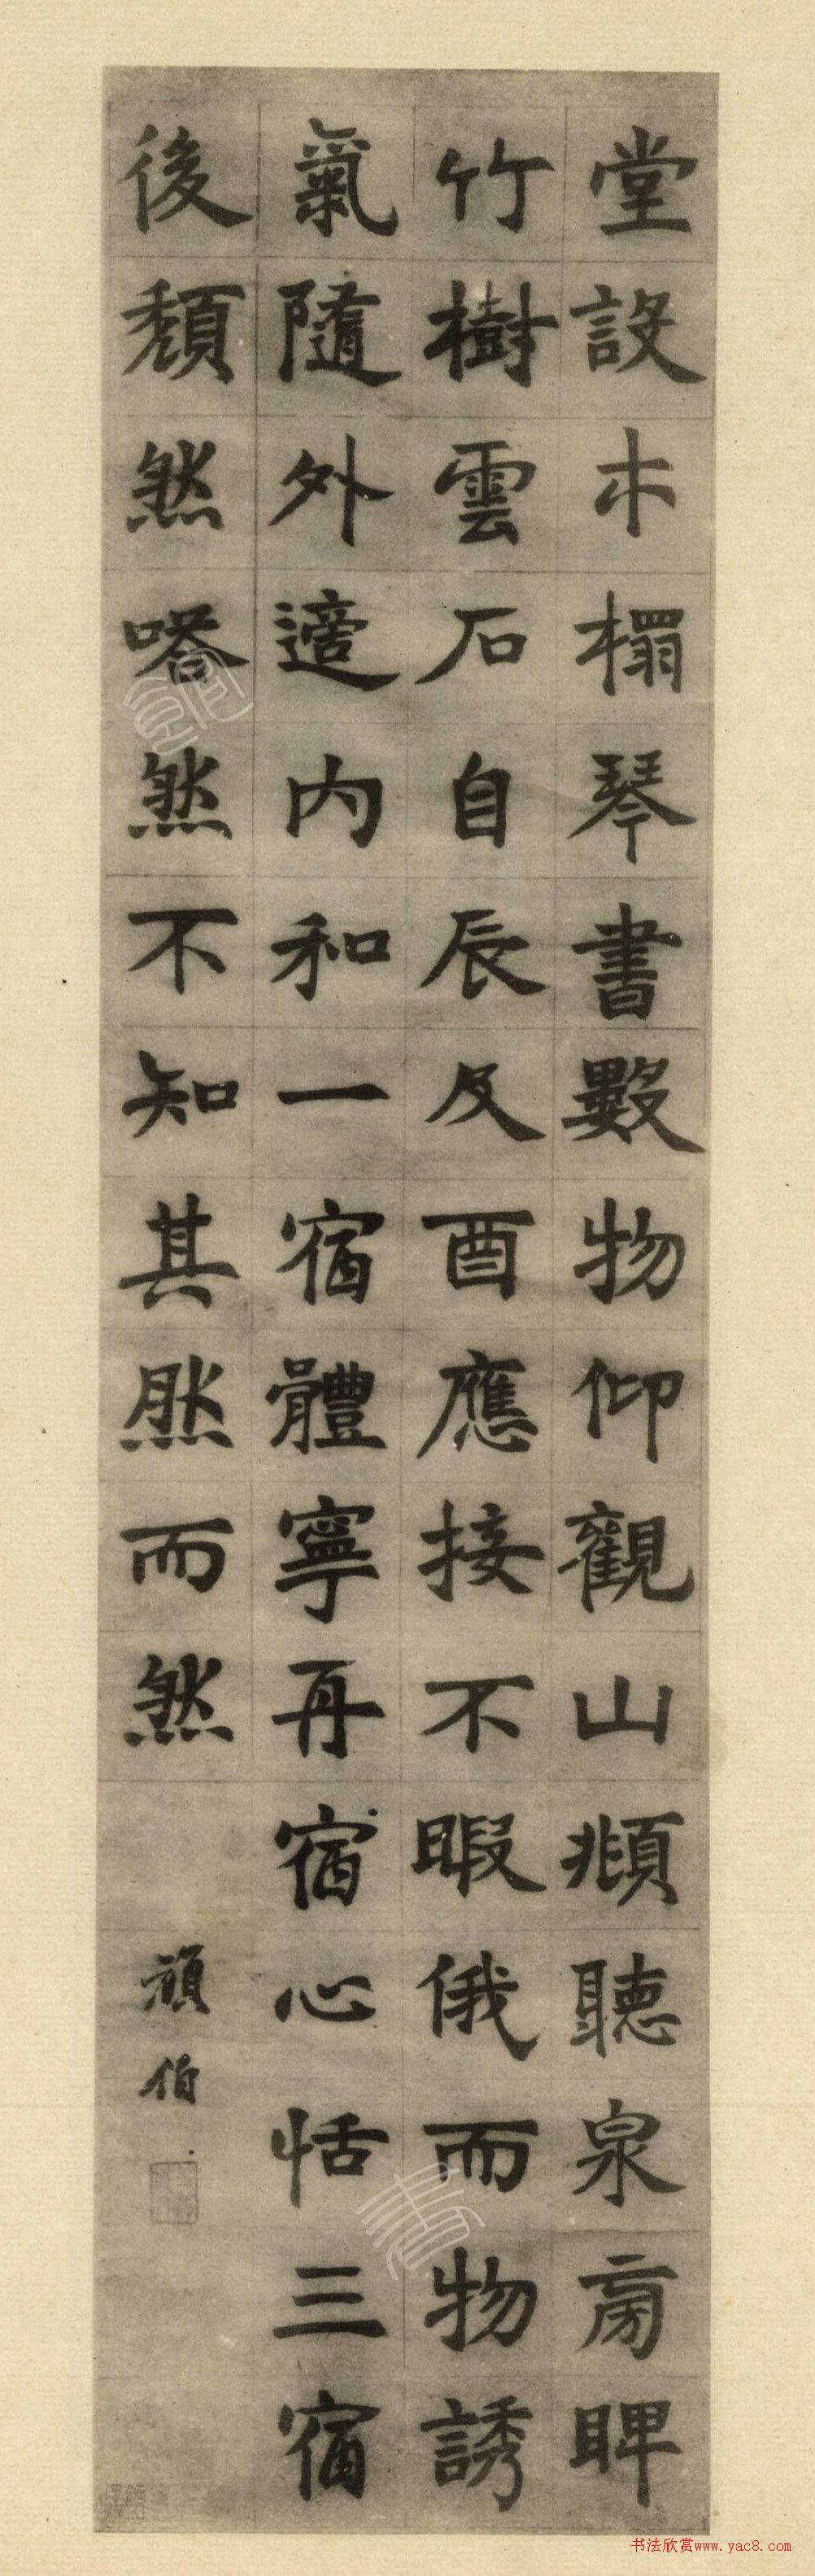 堂設木榻琴書數物仰觀山頫聽泉旁睥
竹樹雲石自辰及酉應接不暇俄而物誘
氣隨外適內和一宿體寧再宿心恬三宿
後頹然嗒然不知其然而然
頑伯
书法欣赏www.yac8.com